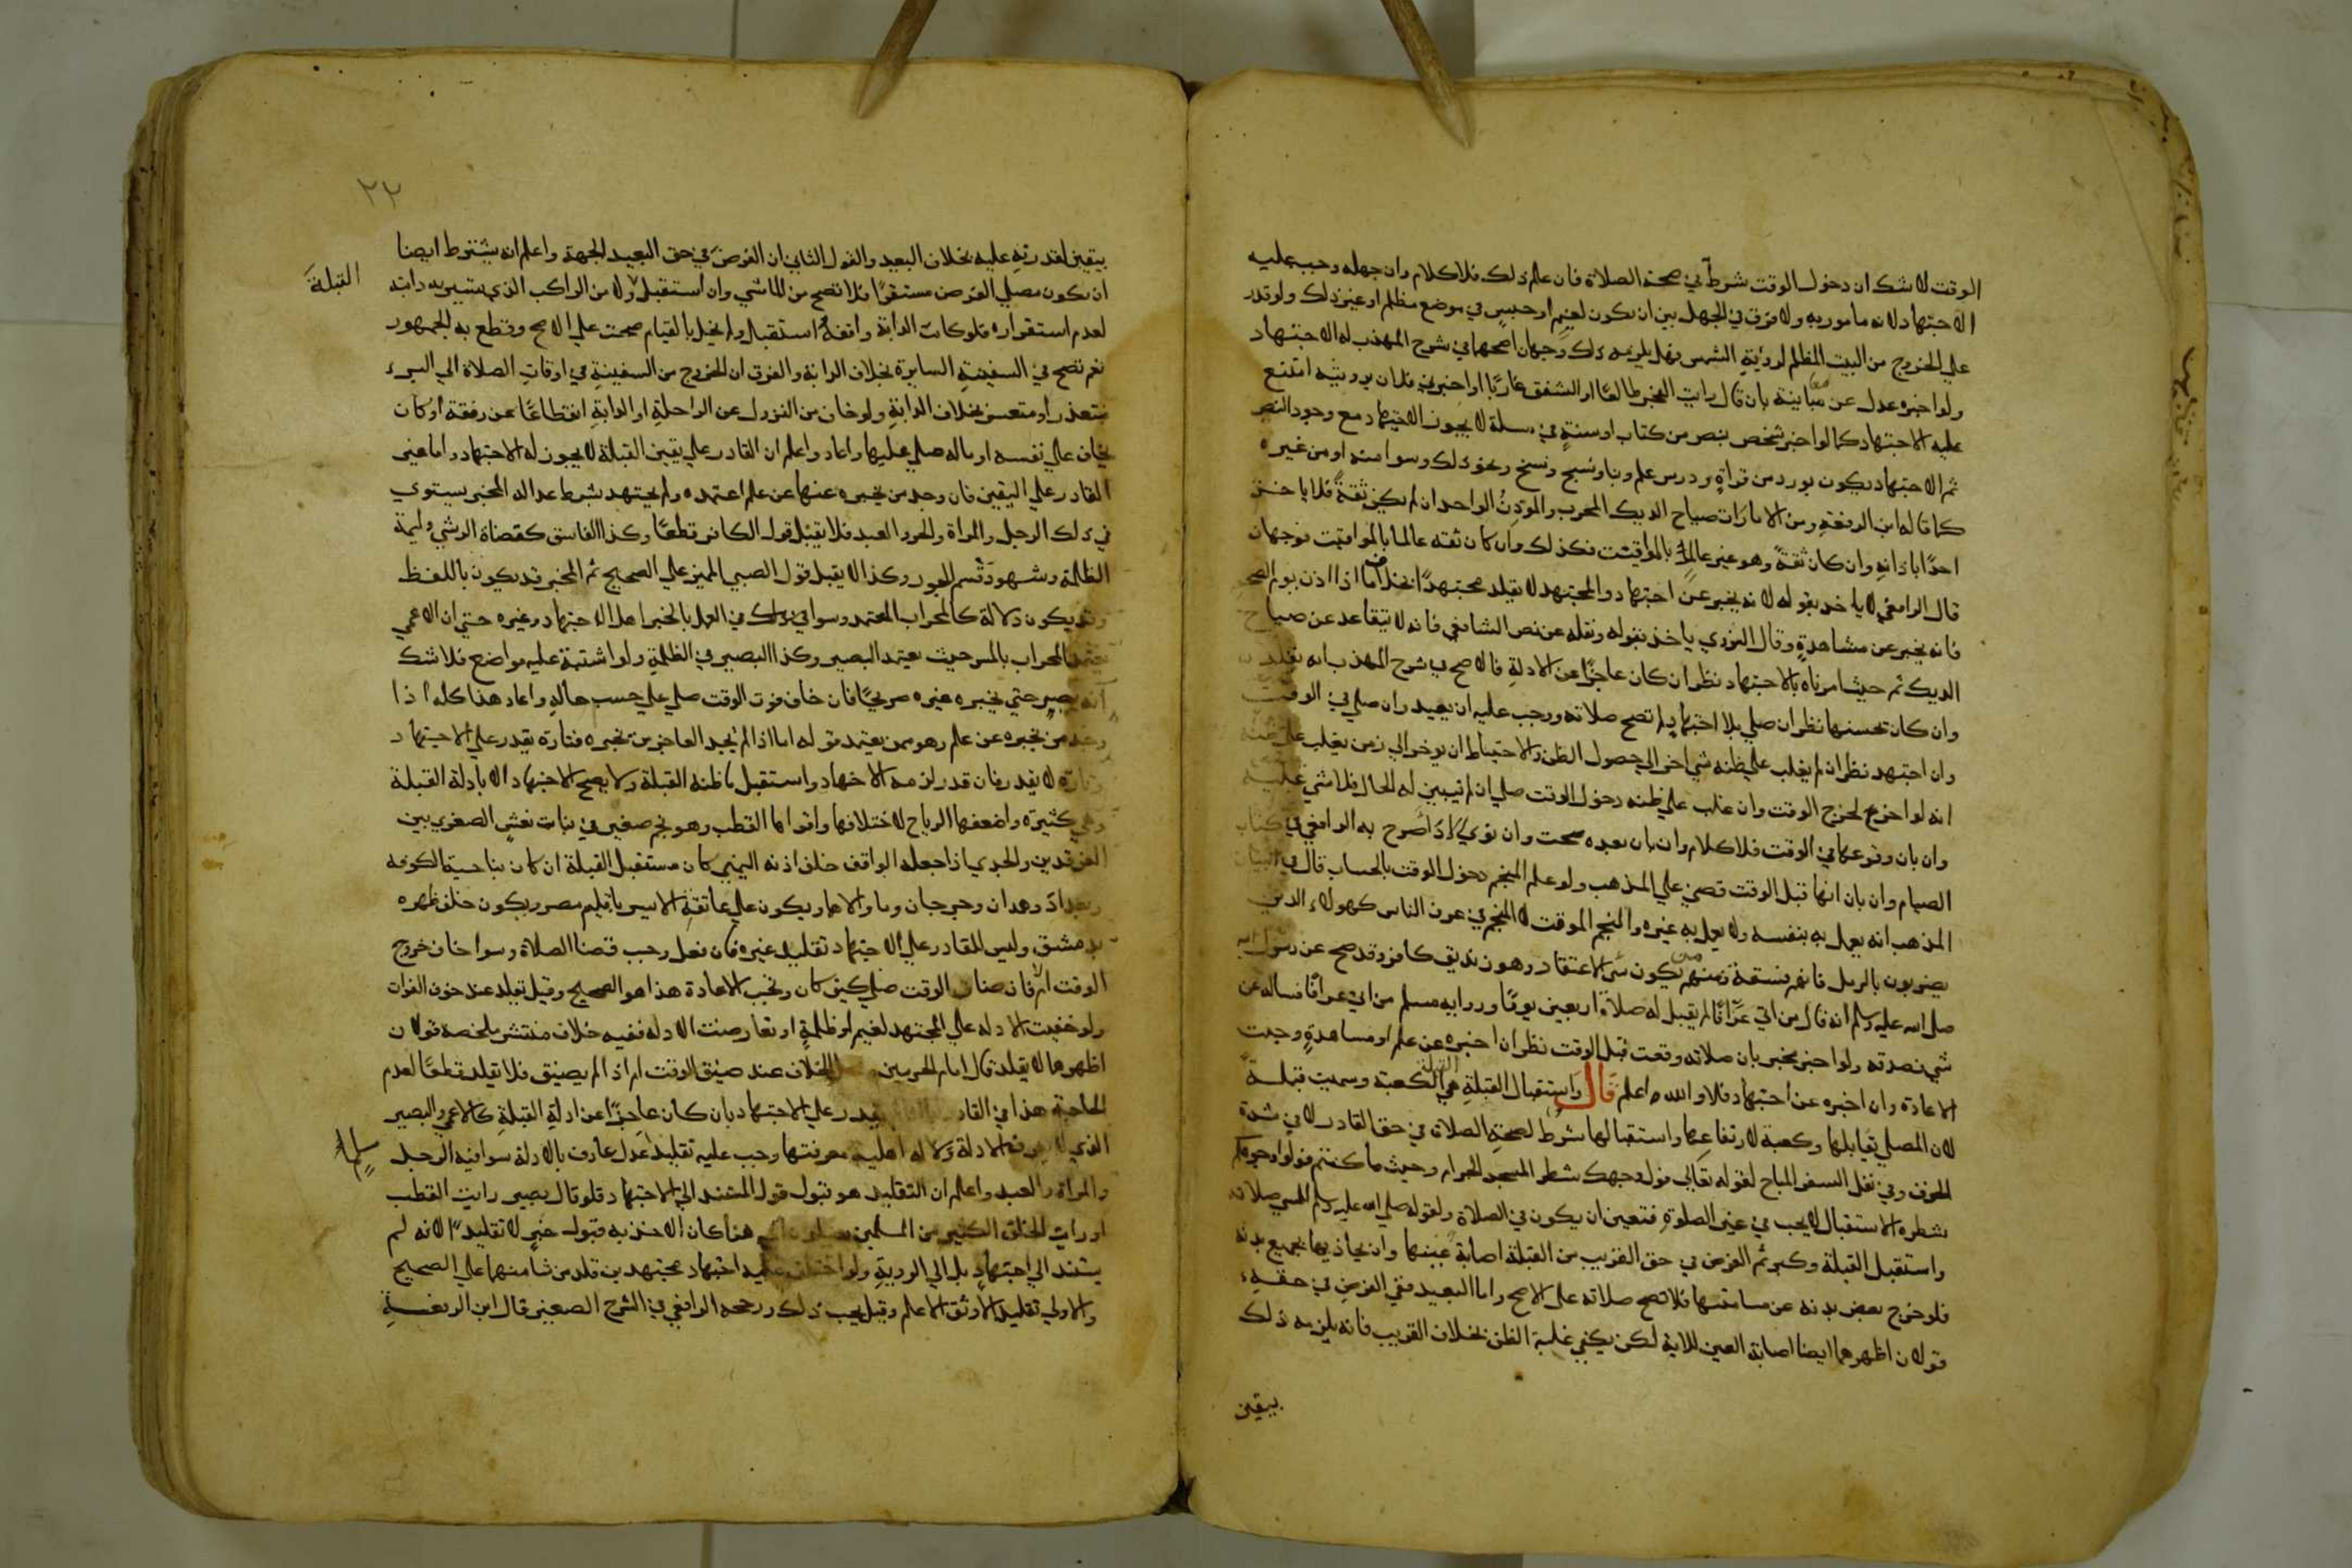 الوقت لا شك ان دخول الوقت شرط في صحة الصلاة فان علم ذلك فلا كلام وان جهله وجب عليه
الاجتهاد لانه مامور به ولا فرق في الجهل بين ان يكون لغيم او حبس في موضع مظلم او غير ذلك ولو قدر
علي الخروج من البيت المظلم لروية الشمس فهل يلزمه ذلك وجهان اصحهما في شرح المهذب له الاجتهاد
ولو اخبره عدل عن معاينة بان قال رايت الفجر طالعا او الشفق غاربا او اخبرني فلان برويته امتنع
عليه الاجتهاد كما لو اخبر شخص بنص من كتاب او سنة في مسلة لا يجوز الاجتهاد مع وجود النص
ثم الاجتهاد يكون بورد من قراة ودرس علم وبناء ونسج ونسخ ونحو ذلك وسوا منه او من غيره
كما قاله ابن الرفعة ومن الامارات صياح الديك المجرب والموذن الواحد ان لم يكن ثقة فلا ياخذ
احد باذانه وان كان ثقة وهو غير عالم بالمواقيت فكذلك وان كان ثقة عالما بالمواقيت فوجهان
قال الرافعي لا ياخذ بقوله لانه يخبر عن اجتهاد والمجتهد لا يقلد مجتهدا بخلاف ما اذا اذن يوم الصحو
فانه يخبر عن مشاهدة وقال النووي ياخذ بقوله ونقله عن نص الشافعي فانه لا يتقاعد عن صياح
الديك ثم حيث امرناه بالاجتهاد نظر ان كان عاجزا عن الادلة فالاصح في شرح المهذب انه يقلد
وان كان يحسنها نظر ان صلي بلا اجتهاد لم تصح صلاته ووجب عليه ان يعيد وان صلي في الوقت
وان اجتهد نظر ان لم يغلب علي ظنه شي اخر الي حصول الظن والاحتياط ان يوخر الي زمن يغلب علي ظنه
انه لو اخر عنه لخرج الوقت وان غلب علي ظنه دخول الوقت صلي ان لم تبين له الحال فلا شي عليه
وان بان وقوعها في الوقت فلا كلام وان بان بعده صحت وان نوي الاداء صرح به الرافعي في كتاب
الصيام وان بان انها قبل الوقت قضي علي المذهب ولو علم المنجم دخول الوقت بالحساب قال في البيان
المذهب انه يعمل به بنفسه ولا يعمل به غيره والمنجم الموقت لا المنجم في عرف الناس كهولاء الذين
يضربون بالرمل فانهم فسقة ومنهم من يكون سي الاعتقاد وهو زنديق كافر وقد صح عن رسول الله
صلي الله عليه وسلم انه قال من اتي عرافا لم يقبل له صلاة اربعين يوما ورواية مسلم من اتي عرافا فساله عن
شي فصدقه ولو اخبر مخبر بان صلاته وقعت قبل الوقت نظر ان اخبره عن علم او مشاهدة وجبت
الاعادة وان اخبره عن اجتهاد فلا والله اعلم قال واستقبال القبلة القبلة هي الكعبة وسميت قبلة
لان المصلي يقابلها وكعبة لارتفاعها واستقبالها شرط لصحة الصلاة في حق القادر لا في شدة
الخوف وفي نفل السفر المباح لقوله تعالي فول وجهك شطر المسجد الحرام وحيث ما كنتم فولوا وجوهكم
شطره الاستقبال لا يجب في غير الصلوة فتعين ان يكون في الصلاة ولقوله صلي الله عليه وسلم للمسي صلاته
واستقبل القبلة وكبر ثم الفرض في حق القريب من القبلة اصابة عينها وان يحاذيها بجميع بدنه
فلو خرج بعض بدنه عن مسامتتها فلا تصح صلاته علي الاصح واما البعيد ففي الفرض في حقه
قولان اظهرهما ايضا اصابة العين للاية لكن يكفي غلبة الظن بخلاف القريب فانه يلزمه ذلك
بيقين
٢٢
بيقين لقدرته عليه بخلاف البعيد والقول الثاني ان الفرض في حق البعيد الجهة واعلم انه يشترط ايضا
ان يكون مصلي الفرض مستقرا فلا تصح من الماشي وان استقبل ولا من الراكب الذي تسير به دابته
القبلة
لعدم استقراره فلو كانت الدابة واقفة واستقبل ولم يخل بالقيام صحت علي الاصح وقطع به الجمهور
نعم تصح في السفينة السايرة بخلاف الدابة والفرق ان الخروج من السفينة في اوقات الصلاة الي البر
متعذر او متعسر بخلاف الدابة ولو خاف من النزول عن الراحلة او الدابة انقطاعا عن رفقة او كان
يخاف علي نفسه او ماله صلي عليها واعاد واعلم ان القادر علي يقين القبلة لا يجوز له الاجتهاد واما غير
القادر علي اليقين فان وجد من يخبره عنها عن علم اعتمده ولم يجتهد بشرط عدالة المخبر يستوي
في ذلك الرجل والمراة والحر والعبد فلا يقبل قول الكافر قطعا وكذا الفاسق كقضاة الرشي وايمة
الظلمة وشهود قسم الجور وكذا لا يقبل قول الصبي المميز علي الصحيح ثم المخبر قد يكون باللفظ
وقد يكون دلالة كالمحراب المعتمد وسوا في ذلك في العمل بالخبر اهل الاجتهاد وغيره حتي ان الاعمي
يعتمد المحراب بالمس حيث يعتمد البصير وكذا البصير في الظلمة ولو اشتبه عليه مواضع فلا شك
انه يصبر حتي يخبره غيره صريحا فان خاف فوت الوقت صلي علي حسب حاله واعاد هذا كله اذا
وجد من يخبره عن علم وهو ممن يعتمد قوله اما اذا لم يجد العاجز من يخبره فتارة يقدر علي الاجتهاد
وتارة لا يقدر فان قدر لزمه الاجتهاد واستقبل ما ظنه القبلة ولا يصح الاجتهاد الا بادلة القبلة
وهي كثيرة واضعفها الرياح لاختلافها واقواها القطب وهو نجم صغير في بنات نعش الصغري بين
الفرقدين والجدي اذا جعله الواقف خلف اذنه اليمني كان مستقبل القبلة ان كان بناحية الكوفة
وبغداد وهمدان وجرجان وما والاها ويكون علي عاتقه الايسر باقليم مصر ويكون خلف ظهره
بدمشق وليس للقادر علي الاجتهاد تقليد غيره فان فعل وجب قضا الصلاة وسوا خاف خروج
الوقت ام لا فان ضاق الوقت صلي كيف كان وتجب الاعادة هذا هو الصحيح وقيل يقلد عند خوف الفوات
ولو خفيت الادلة علي المجتهد لغيم او ظلمة او تعارضت الادلة ففيه خلاف منتشر ملخصه قولان
اظهرهما لا يقلد قال امام الحرمين الخلاف عند ضيق الوقت اما اذا لم يضيق فلا تقليد قطعا لعدم
الحاجة هذا في القادر يقدر علي الاجتهاد بان كان عاجزا عن ادلة القبلة كالاعمي والبصير
الذي لا يعرف الادلة ولا له اهلية معرفتها وجب عليه تقليد عدل عارف بالادلة سوا فيه الرجل
والمراة والعبد واعلم ان التقليد هو قبول قول المستند الي الاجتهاد فلو قال بصير رايت القطب
او رايت الخلق الكثير من المسلمين يصلون الي هنا كان الاخذ به قبول خبر لا تقليدا لانه لم
يستند الي اجتهاد بل الي الروية ولو اختلف عليه اجتهاد مجتهدين قلد من شا منهما علي الصحيح
والاولي تقليد الاوثق الاعلم وقيل يجب ذلك ورجحه الرافعي في الشرح الصغير قال ابن الرفعة